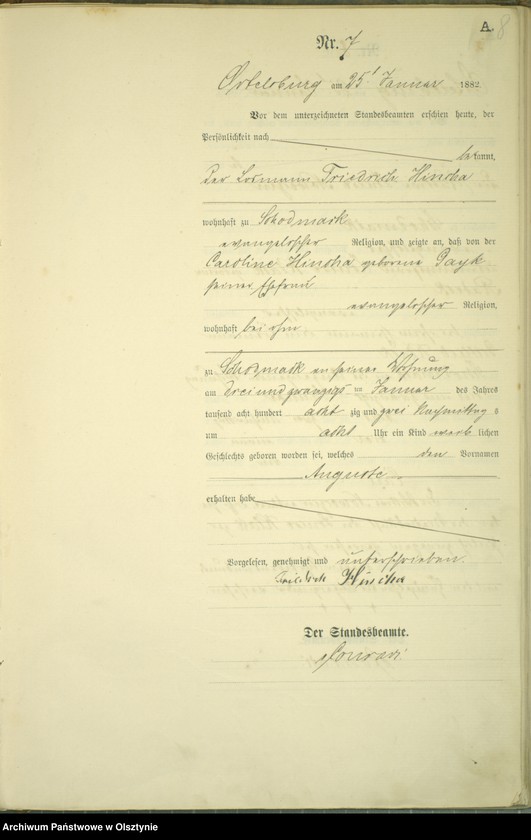 A.
8
Nr. 7
Ortelsburg am 25t Januar 1882.
Vor dem unterzeichneten Standesbeamten erschien heute, der
Persönlichkeit nach
bekannt,
der Losmann Friedrich Hincha
wohnhaft zu Schodmack
evangelischer Religion, und zeigte an, daß von der
Caroline Hincha geborene Payk
seiner Ehefrau
evangelischer Religion,
wohnhaft bei ihm
zu Schodmack in seiner Wohnung
am drei und zwanzigs ten Januar des Jahres
tausend acht hundert acht zig und zwei Nachmittag s
um acht Uhr ein Kind weib lichen
Geschlechts geboren worden sei, welches den Vornamen
Auguste
erhalten habe
Vorgelesen, genehmigt und unterschrieben.
Friedrich Hincha
Der Standesbeamte.
Archiwum Państwowe w Olsztynie